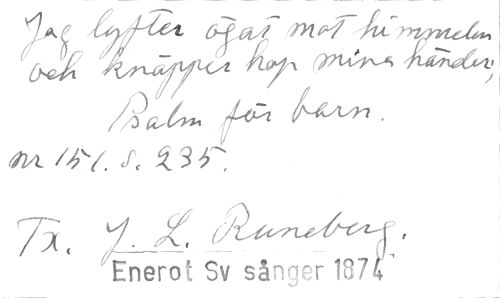 Jag lyfter ögat mot himmelen
och knäpper hop mina händer,
Psalm för barn.
nr 151. s. 235.
Tx. J. L. Runeberg.
Enerot Sv sånger 1874